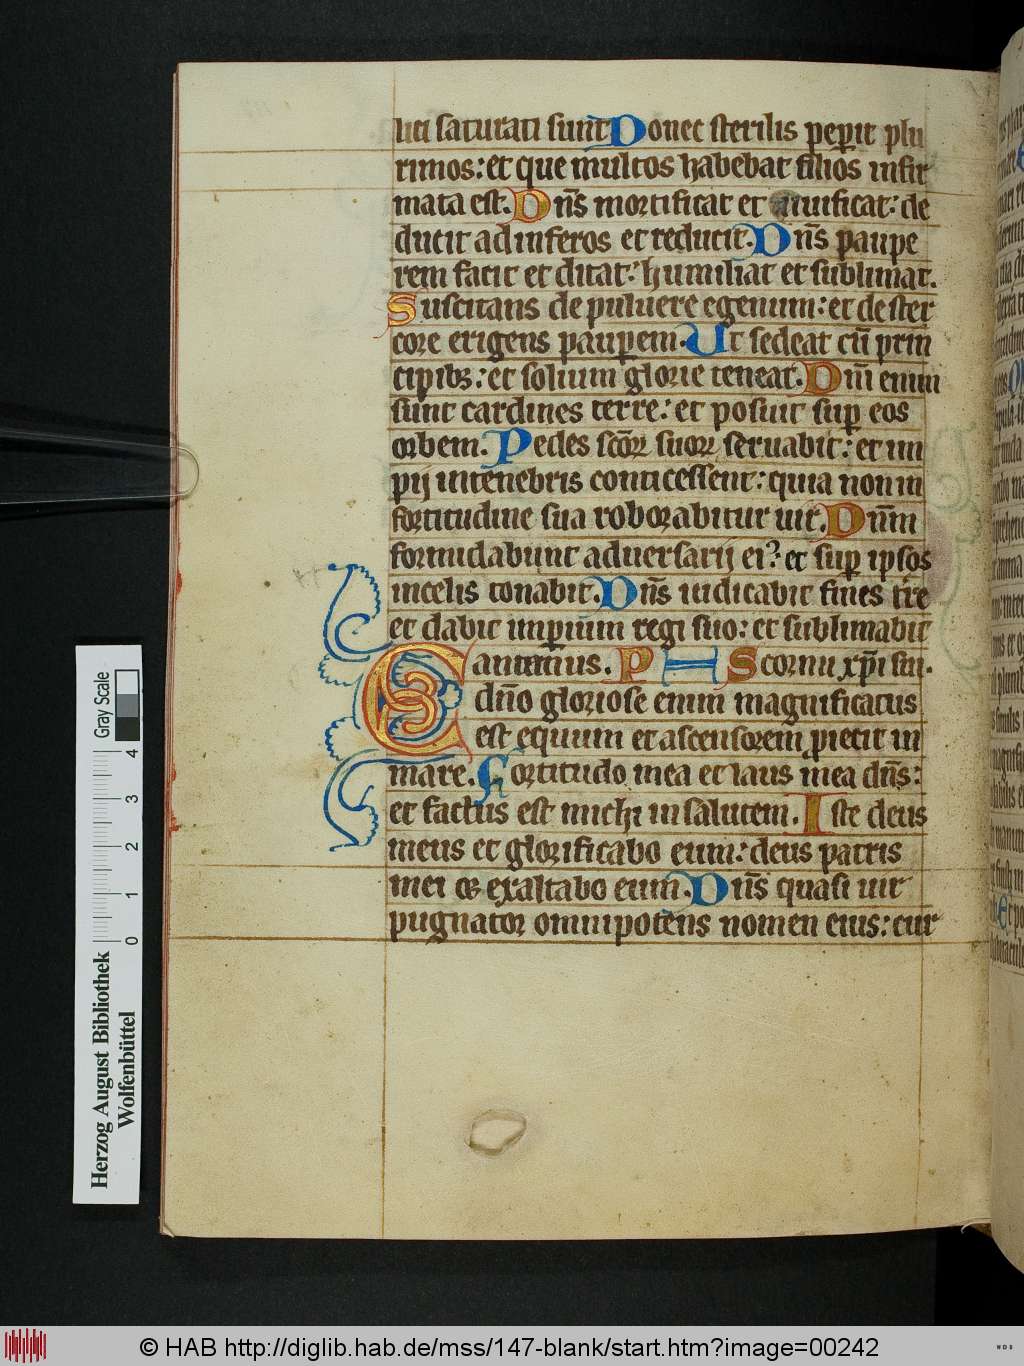 liti saturati sunt Donec sterilis peperit plu
rimos: et que multos habebat filios infir
mata est. Dñs mortificat et uiuificat: de
ducit ad inferos et reducit. Dñs paupe
rem facit et ditat: humiliat et sublimat.
Suscitans de puluere egenum: et de ster
core erigens pauperem. Ut sedeat cū prin
cipibꝫ: et solium glorie teneat. Dñi enim
sunt cardines terre: et posuit sup eos
orbem. Pedes scõꝝ suoꝝ seruabit: et im
pij in tenebris conticescent: quia non in
fortitudine sua roborabitur uir. Dñm
formidabunt aduersarij ei': et sup ipsos
in celis tonabit. Dñs iudicabit fines tre
et dabit imperium regi suo: et sublimabit
cornu xp̄i sui.
Cantemus. PHS
dño gloriose enim magnificatus
est equum et ascensorem proiecit in
mare. Fortitudo mea et laus mea dñs:
et factus est michi in salutem. Iste deus
meus et glorificabo eum: deus patris
mei et exaltabo eum. Dñs quasi uir
pugnator omnipotens nomen eius: cur
Gray Scale
4
3
2
1
0
Herzog August Bibliothek
Wolfenbüttel
© HAB http://diglib.hab.de/mss/147-blank/start.htm?image=00242